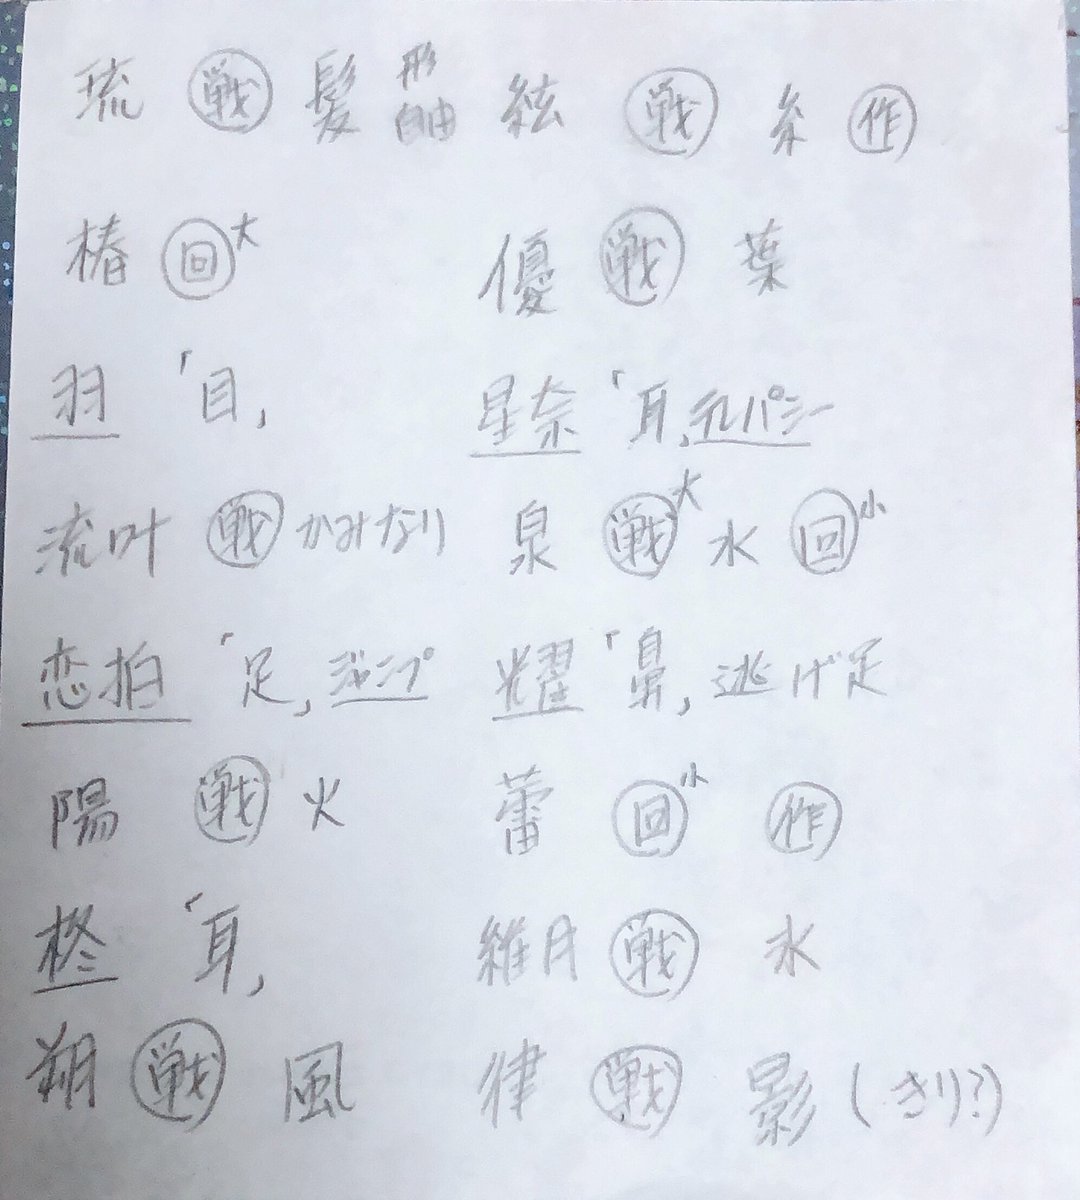 琉 戦 髪 形自由 絃 戦 糸 作
椿 回大 優 戦 葉
羽 「目」 星奈 「耳」テレパシー
流叶 戦 かみなり 泉 戦大 水 回小
恋拍 「足」ジャンプ 耀 「鼻」逃げ足
陽 戦 火 蕾 回小 作
柊 「耳」 維月 戦 氷
朔 戦 風 律 戦 影 (きり?)